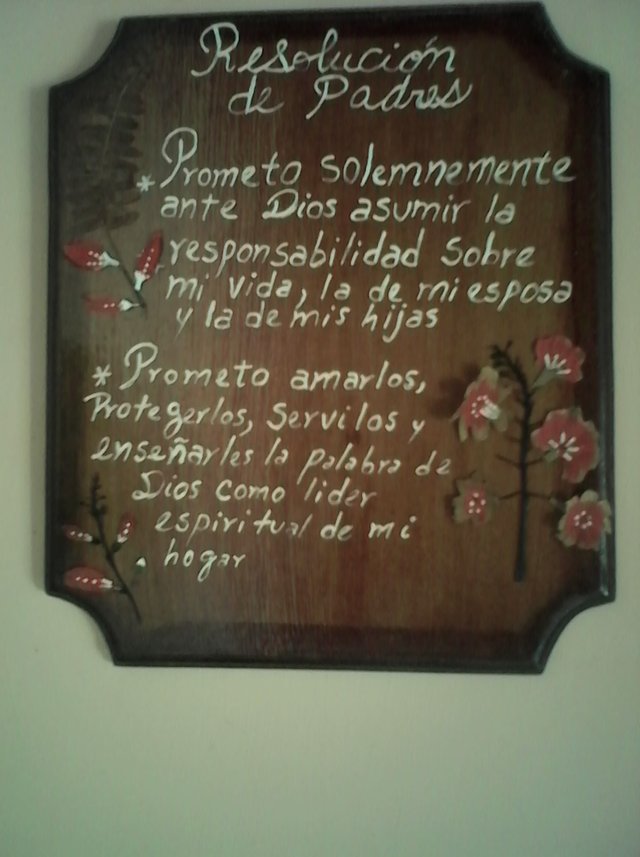 Resolución
de Padres
* Prometo solemnemente
ante Dios asumir la
responsabilidad sobre
mi vida, la de mi esposa
y la de mis hijas
* Prometo amarlos,
Protegerlos, servilos y
enseñarles la palabra de
Dios como lider
espiritual de mi
hogar